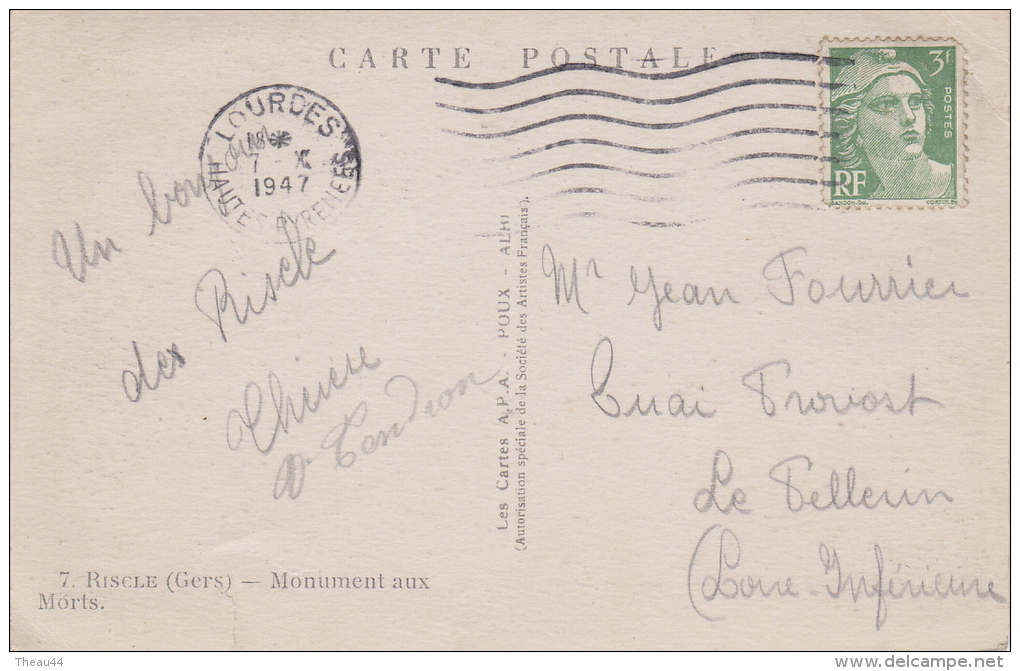 CARTE POSTALE
LOURDES
18
7 X
1947
HAUTES PYRENEES
3f
POSTES
RF
GANDON
Un bon
de Riscle
Mr Jean Fourrier
Quai Provost
Le Pellerin
(Loire-Inférieure
Les Cartes A.P.A. - POUX - ALBI
(Autorisation spéciale de la Société des Artistes Français).
7. RISCLE (Gers) — Monument aux
Morts.
Theau44
delcampe.net